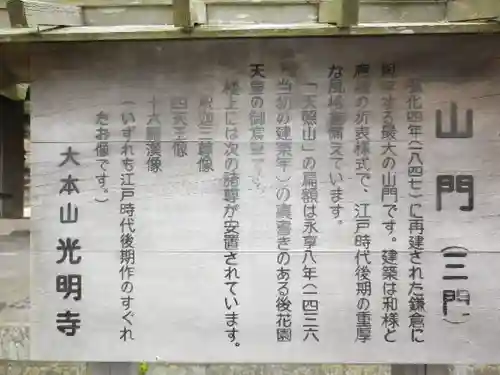 山門（三門）
弘化四年（一八四七）に再建された鎌倉に
現存する最大の山門です。建築は和様と
唐様の折衷様式で、江戸時代後期の重厚
な風格を備えています。
「天照山」の扁額は永享八年（一四三六
当初の建築年）の裏書きのある後花園
天皇の御宸筆です。
楼上には次の諸尊が安置されています。
釈迦三尊像
四天王像
十六羅漢像
（いずれも江戸時代後期作のすぐれ
たお像です。）
大本山 光明寺